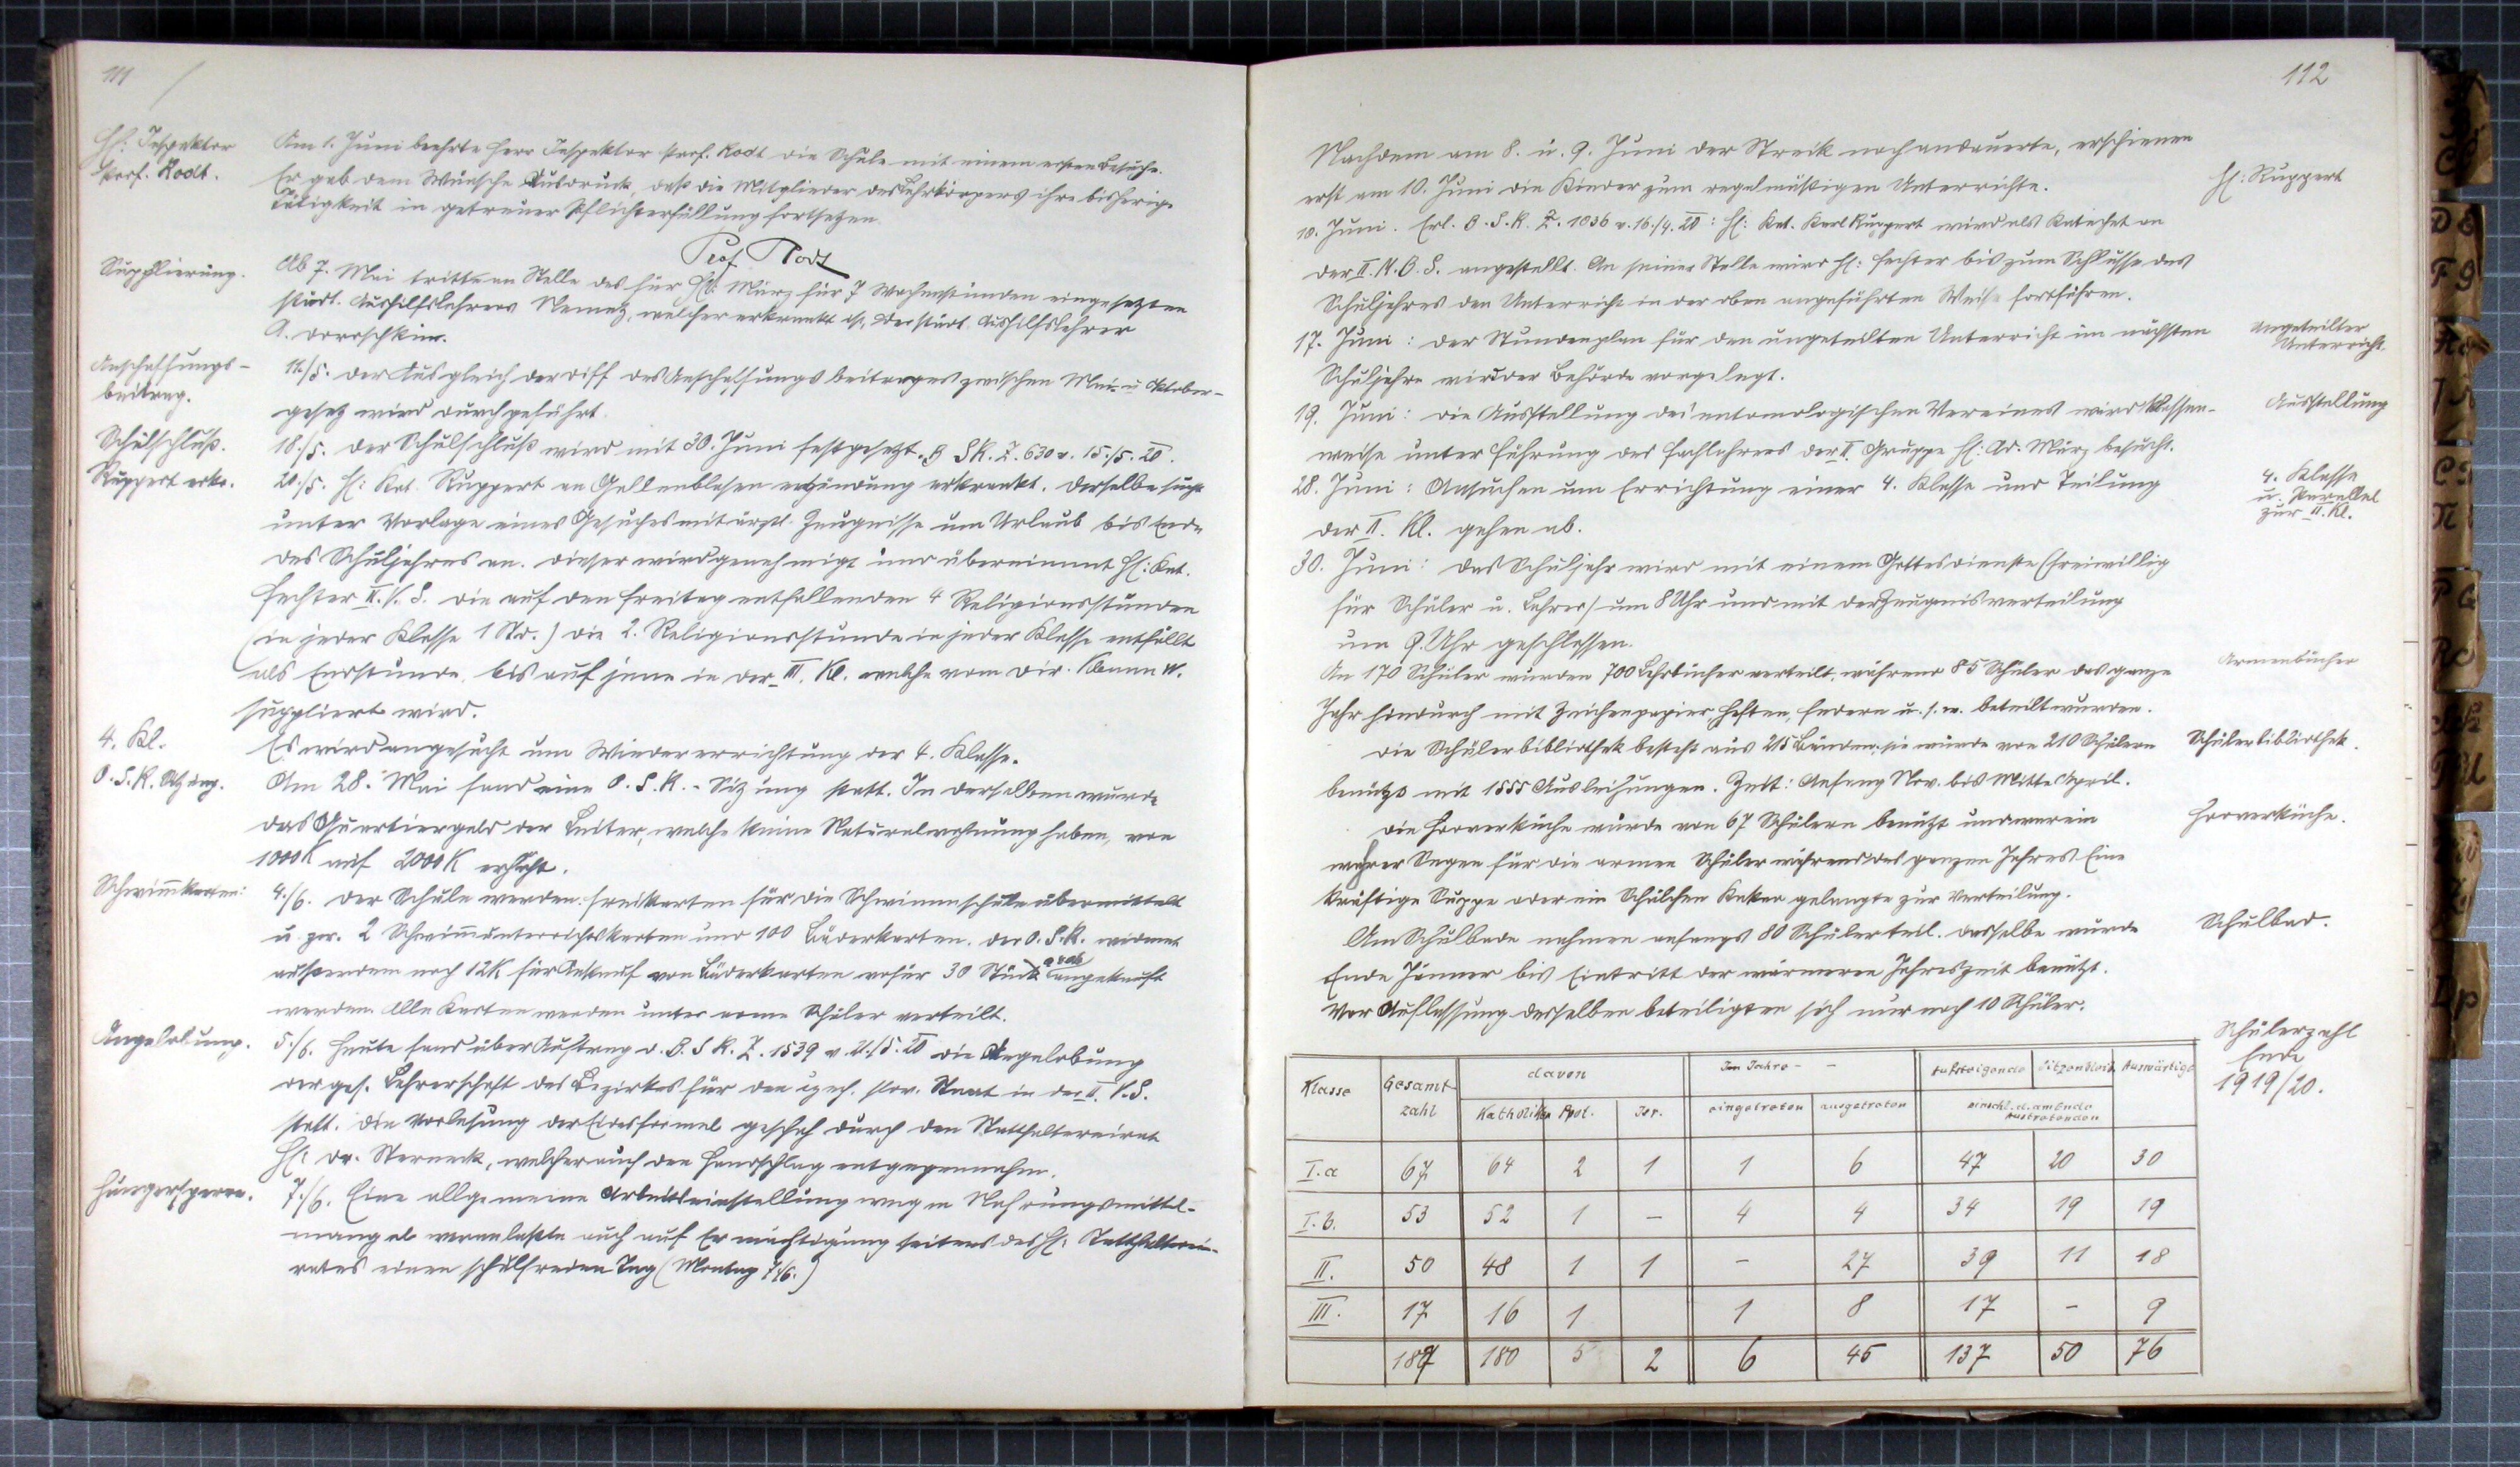 111
Hl: Inspektor
Prof. Rodt.
Am 1. Juni beehrte Herr Inspektor Prof. Rodt die Schule mit einem ersten Besuche.
Er gab dem Wunsche Ausdruck, daß die Mitglieder des Lehrkörpers ihre bisherige
Tätigkeit in getreuer Pflichterfüllung fortsetzen.
Prof Rodt
Supplierung.
Ab 7. Mai tritt an Stelle des für Hl: März für 7 Wochenstunden eingesetzten
städt. Aushilfslehrers Nemetz, welcher erkrankt ist, der städt. Aushilfslehrer
A. Doroschkin.
Anschaffungs-
beitrag.
11./5. Der Ausgleich der Diff des Anschaffungsbeitrages zwischen Mai- u Oktober-
gesetz wird durchgeführt.
Schulschluß.
18./5. Der Schulschluß wird mit 30. Juni festgesetzt. B SR. Z. 630 v. 15./5. 20.
Ruppert erkr.
20./5. Hl: Kat. Ruppert an Gallenblasenentzündung erkrankt. Derselbe sucht
unter Vorlage eines Gesuches mit ärztl. Zeugnisse um Urlaub bis Ende
des Schuljahres an. Dieser wird genehmigt und übernimmt Hl: Kat.
Fechter II. K. S. die auf den Freitag entfallenden 4 Religionsstunden
(in jeder Klasse 1 Std.) die 2. Religionsstunde in jeder Klasse entfällt
als Endstunde, bis auf jene in der III. Kl. welche vom Dir. Klemm W.
suppliert wird.
4. Kl.
Es wird angesucht um Wiedererrichtung der 4. Klasse.
O.S.R. Sitzung.
Am 28. Mai fand eine O.S.R.-Sitzung statt. In derselben wurde
das Quartiergeld der Leiter, welche keine Naturalwohnung haben, von
1000 K auf 2000 K erhöht.
Schwimmkarten:
4./6. Der Schule werden Freikarten für die Schwimmschule übermittelt
u. zw. 2 Schwimmunterrichtskarten und 100 Bäderkarten. Der O.S.R. widmet
außerdem noch 12 K für Ankauf von Bäderkarten wofür 30 Stück angekauft
werden. Alle Karten werden unter arme Schüler verteilt.
Angelobung.
5./6. Heute fand über Auftrag d. B.S.R. Z. 1539 v. 21./5. 20 die Angelobung
der ges. Lehrerschaft des Bezirkes für den čech. slov. Staat in der II. K.S.
statt. Die Vorlesung der Eidesformel geschah durch den Statthaltereirat
Hl: Dr. Sterneck, welcher auch den Handschlag entgegennahm.
Hungersperre.
7./6. Eine allgemeine Arbeitseinstellung wegen Nahrungsmittel-
mangels veranlaßte auch auf Ermächtigung seitens des Hl: Statthalterei-
rates einen schulfreien Tag (Montag 7./6.)
112
Nachdem am 8. u. 9. Juni der Streik noch andauerte, erschienen
erst am 10. Juni die Kinder zum regelmäßigen Unterrichte.
Hl: Ruppert
10. Juni. Erl. B.S.R. Z. 1036 v. 16./4. 20: Hl: Kat. Karl Ruppert wird als Katechet an
der II. K. B. S. angestellt. An seiner Stelle wird Hl: Fechter bis zum Schlusse des
Schuljahres den Unterricht in der oben angeführten Weise fortführen.
17. Juni: Der Stundenplan für den ungeteilten Unterricht im nächsten
Schuljahre wird der Behörde vorgelegt.
ungeteilter
Unterricht.
19. Juni: Die Ausstellung des entomologischen Vereines wird klassen-
weise unter Führung des Fachlehrers der II. Gruppe Hl: Ad. März besucht.
Ausstellung
28. Juni: Ansuchen um Errichtung einer 4. Klasse und Teilung
der II. Kl. gehen ab.
4. Klasse
u. Parallel
zur II. Kl.
30. Juni: Das Schuljahr wird mit einem Gottesdienste (freiwillig
für Schüler u. Lehrer) um 8 Uhr und mit der Zeugnisverteilung
um 9 Uhr geschlossen.
An 170 Schüler wurden 700 Lehrbücher verteilt, während 85 Schüler das ganze
Jahr hindurch mit Zeichenpapier, Heften, Federn u. s. w. beteilt wurden.
Armenbücher
Die Schülerbibliothek besteht aus 215 Bänden; sie wurde von 210 Schülern
benützt mit 1555 Ausleihungen. Zeit: Anfang Nov. bis Mitte April.
Schülerbibliothek.
Die Hooverküche wurde von 67 Schülern benützt und war ein
wahrer Segen für die armen Schüler während des ganzen Jahres. Eine
kräftige Suppe oder ein Schälchen Kakao gelangte zur Verteilung.
Hooverküche.
Am Schulbade nahmen anfangs 80 Schüler teil. Dasselbe wurde
Ende Jänner bis Eintritt der wärmeren Jahreszeit benützt.
Vor Auflassung desselben beteiligten sich nur noch 10 Schüler.
Schulbad.
Schülerzahl
Ende
1919/20.
Klasse Gesamt- davon Im Jahre - - Aufsteigende Sitzenbleib. Auswärtige
zahl Katholiken Prot. Isr. eingetreten ausgetreten einschl. d. am Ende
Austretenden
I. a 67 64 2 1 1 6 47 20 30
I. b. 53 52 1 – 4 4 34 19 19
II. 50 48 1 1 – 27 39 11 18
III. 17 16 1 1 8 17 – 9
187 180 5 2 6 45 137 50 76